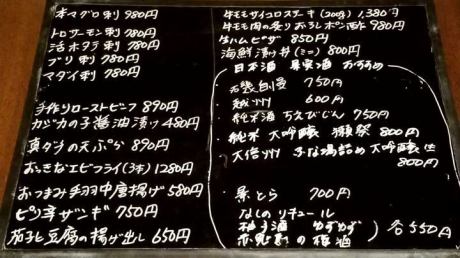 本マグロ刺 980円
トロサーモン刺 780円
活ホタテ刺 780円
ブリ刺 780円
マダイ刺 780円
手作りローストビーフ 890円
カジカの子醤油漬け 480円
真ダチの天ぷら 890円
おっきなエビフライ(3本) 1280円
おつまみ手羽中唐揚げ 580円
ピリ辛ザンギ 750円
茄子と豆腐の揚げ出し 650円
牛モモサイコロステーキ(200g) 1,380円
牛モモ肉の炙りおろしポン酢 980円
生ハムピザ 850円
海鮮漬け丼(ミニ) 800円
日本酒 果実酒 おすすめ
750円
越州 600円
純米酒 ちえびじん 750円
純米 大吟醸 獺祭 800円
大信州 ふな場詰め 大吟醸
800円
景とら 700円
なしのリキュール
柚子酒 ゆずゆず
の梅酒
各550円